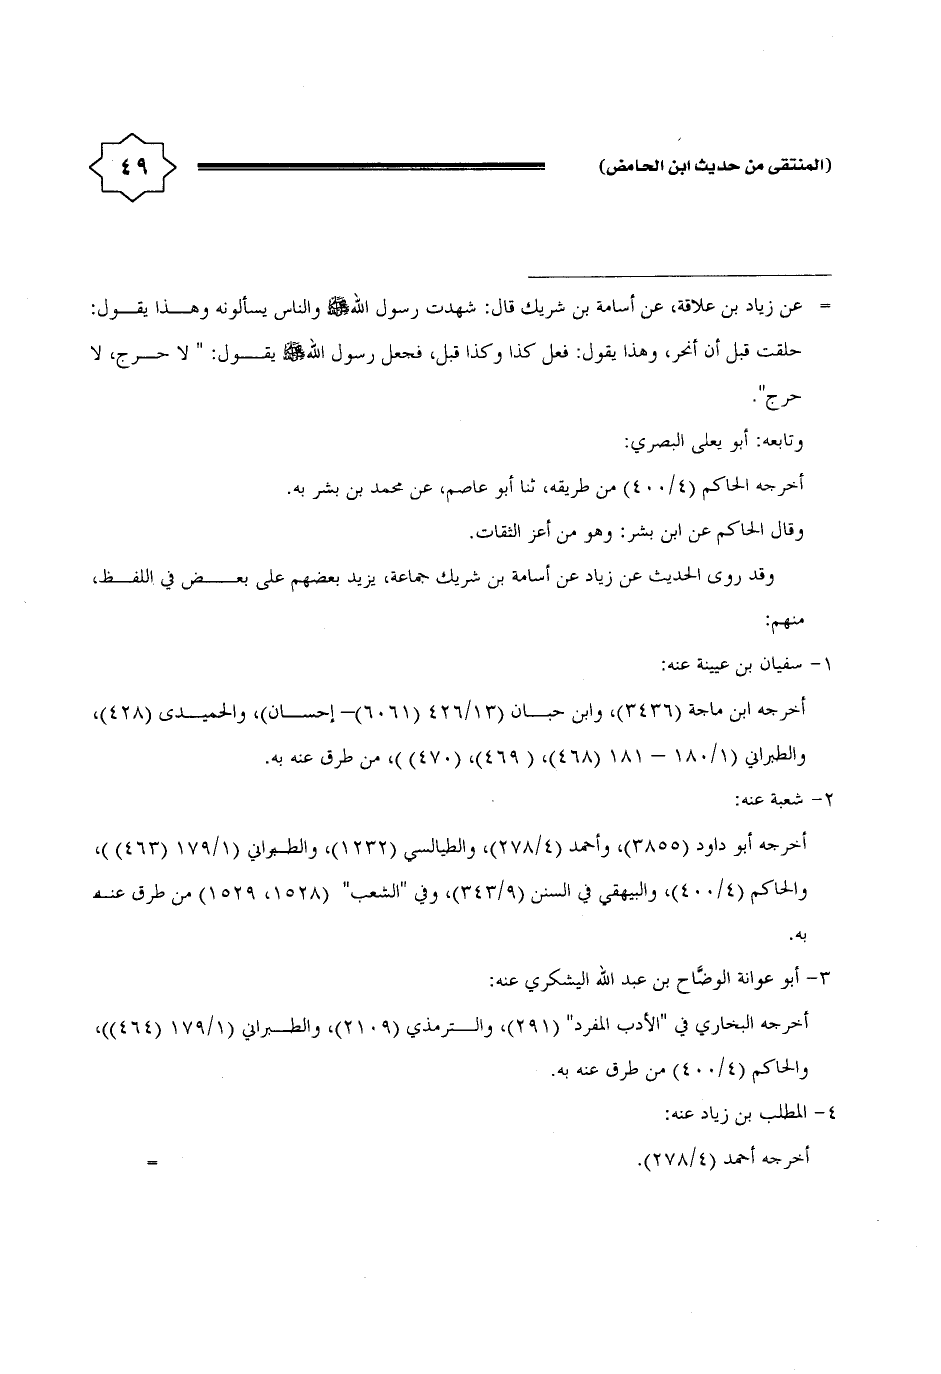 (المنتقى من حديث ابن الحامض)
٤٩
= عن زياد بن علاقة، عن أسامة بن شريك قال: شهدت رسول الله ﷺ والناس يسألونه وهـــذا يقـــول:
حلقت قبل أن أنحر، وهذا يقول: فعل كذا وكذا قبل، فجعل رسول الله ﷺ يقـــول: " لا حـــرج، لا
حرج".
وتابعه: أبو يعلى البصري:
أخرجه الحاكم (٤٠٠/٤) من طريقه، ثنا أبو عاصم، عن محمد بن بشر به.
وقال الحاكم عن ابن بشر: وهو من أعز الثقات.
وقد روى الحديث عن زياد عن أسامة بن شريك جماعة، يزيد بعضهم على بعـــض في اللفـــظ،
منهم:
١- سفيان بن عيينة عنه:
أخرجه ابن ماجة (٣٤٣٦)، وابن حبـــان (٤٢٦/١٣ (٦٠٦١)– إحســـان)، والحميـــدى (٤٢٨)،
والطبراني (١٨٠/١ – ١٨١ (٤٦٨)، ( ٤٦٩)، (٤٧٠) )، من طرق عنه به.
٢- شعبة عنه:
أخرجه أبو داود (٣٨٥٥)، وأحمد (٢٧٨/٤)، والطيالسي (١٢٣٢)، والطـــبراني (١٧٩/١ (٤٦٣) )،
والحاكم (٤٠٠/٤)، والبيهقي في السنن (٣٤٣/٩)، وفي "الشعب" (١٥٢٨، ١٥٢٩) من طرق عنـــه
به.
٣- أبو عوانة الوضَّاح بن عبد الله اليشكري عنه:
أخرجه البخاري في "الأدب المفرد" (٢٩١)، والـــترمذي (٢١٠٩)، والطـــبراني (١٧٩/١ (٤٦٤))،
والحاكم (٤٠٠/٤) من طرق عنه به.
٤- المطلب بن زياد عنه:
أخرجه أحمد (٢٧٨/٤). =